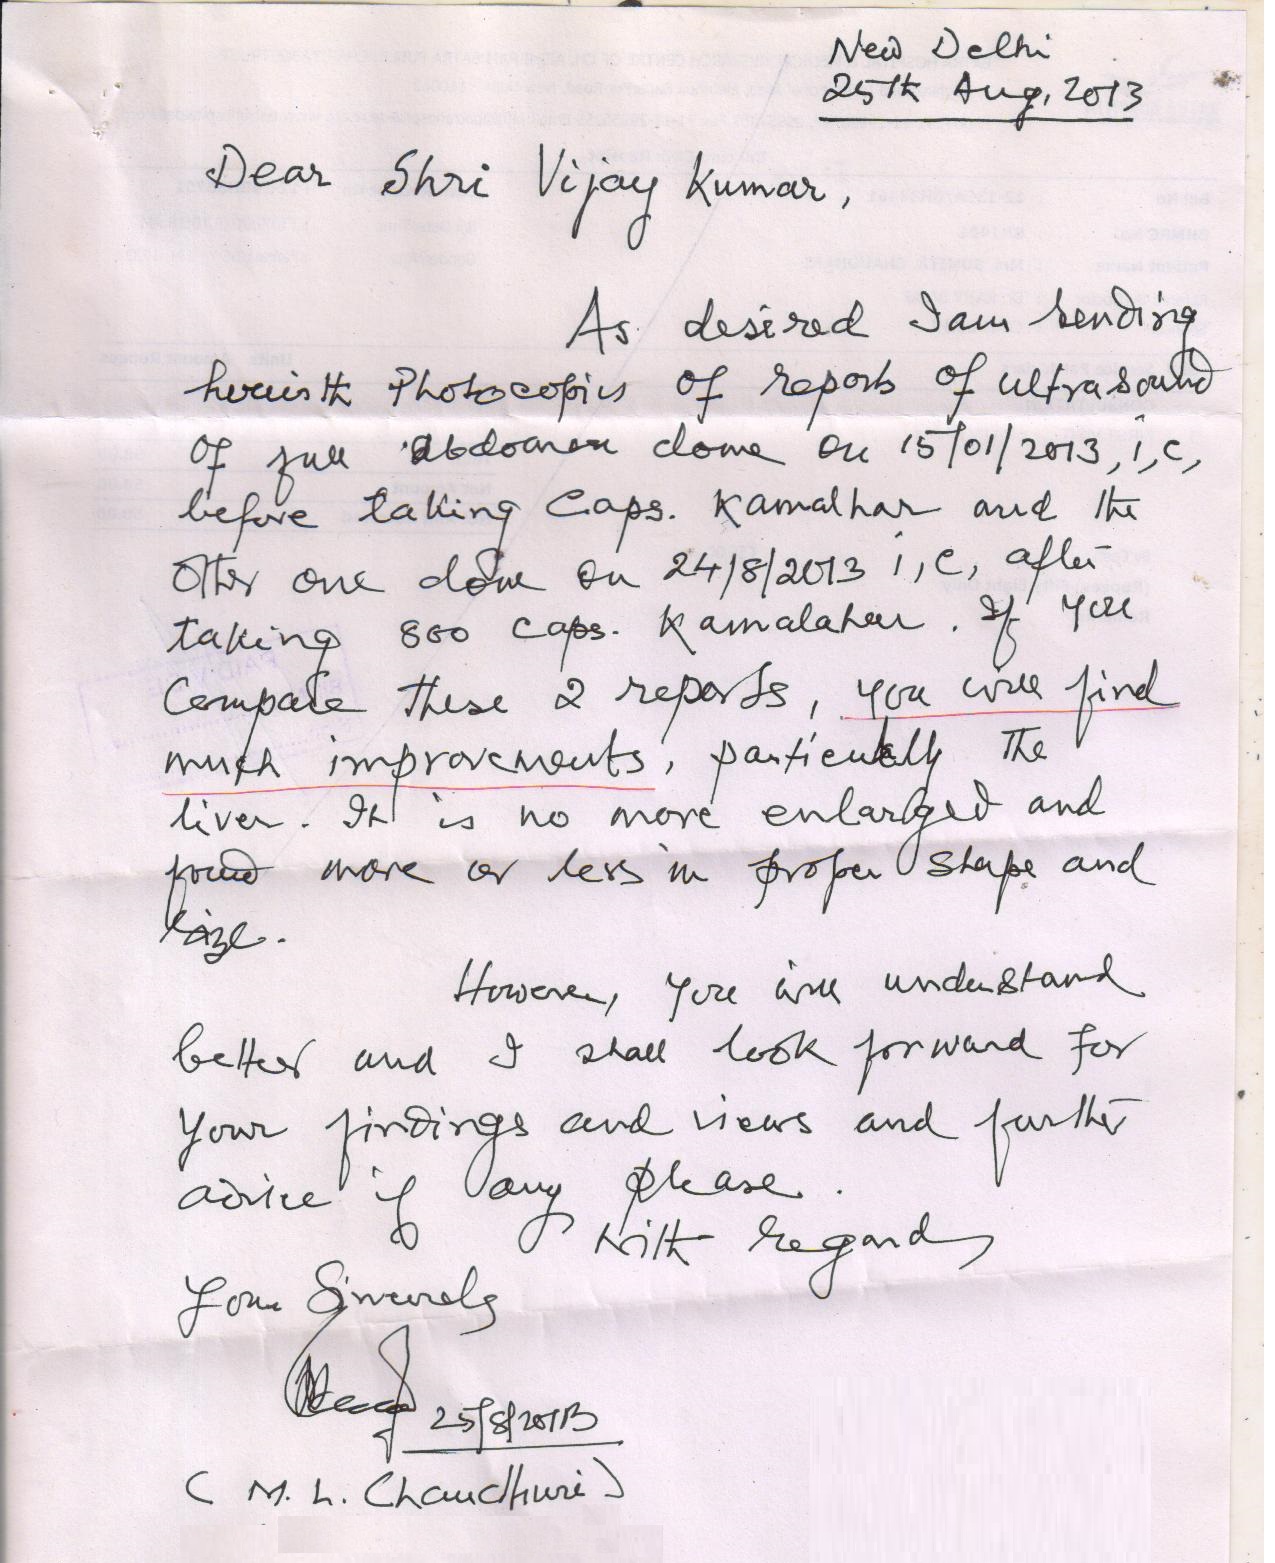 New Delhi
25th Aug, 2013
Dear Shri Vijay Kumar,
As desired I am sending
herewith Photocopies of reports of ultrasound
of full abdomen done on 15/01/2013, i,e,
before taking Caps. Kamalhar and the
other one done on 24/8/2013 i,e, after
taking 800 Caps. Kamalahar. If you
Compare these 2 reports, you will find
much improvements, particularly the
liver. It is no more enlarged and
found more or less in proper shape and
size.
However, you will understand
better and I shall look forward for
your findings and views and further
advice if any please.
With regards
Yours Sincerely
25/8/2013
( M. L. Chaudhuri )